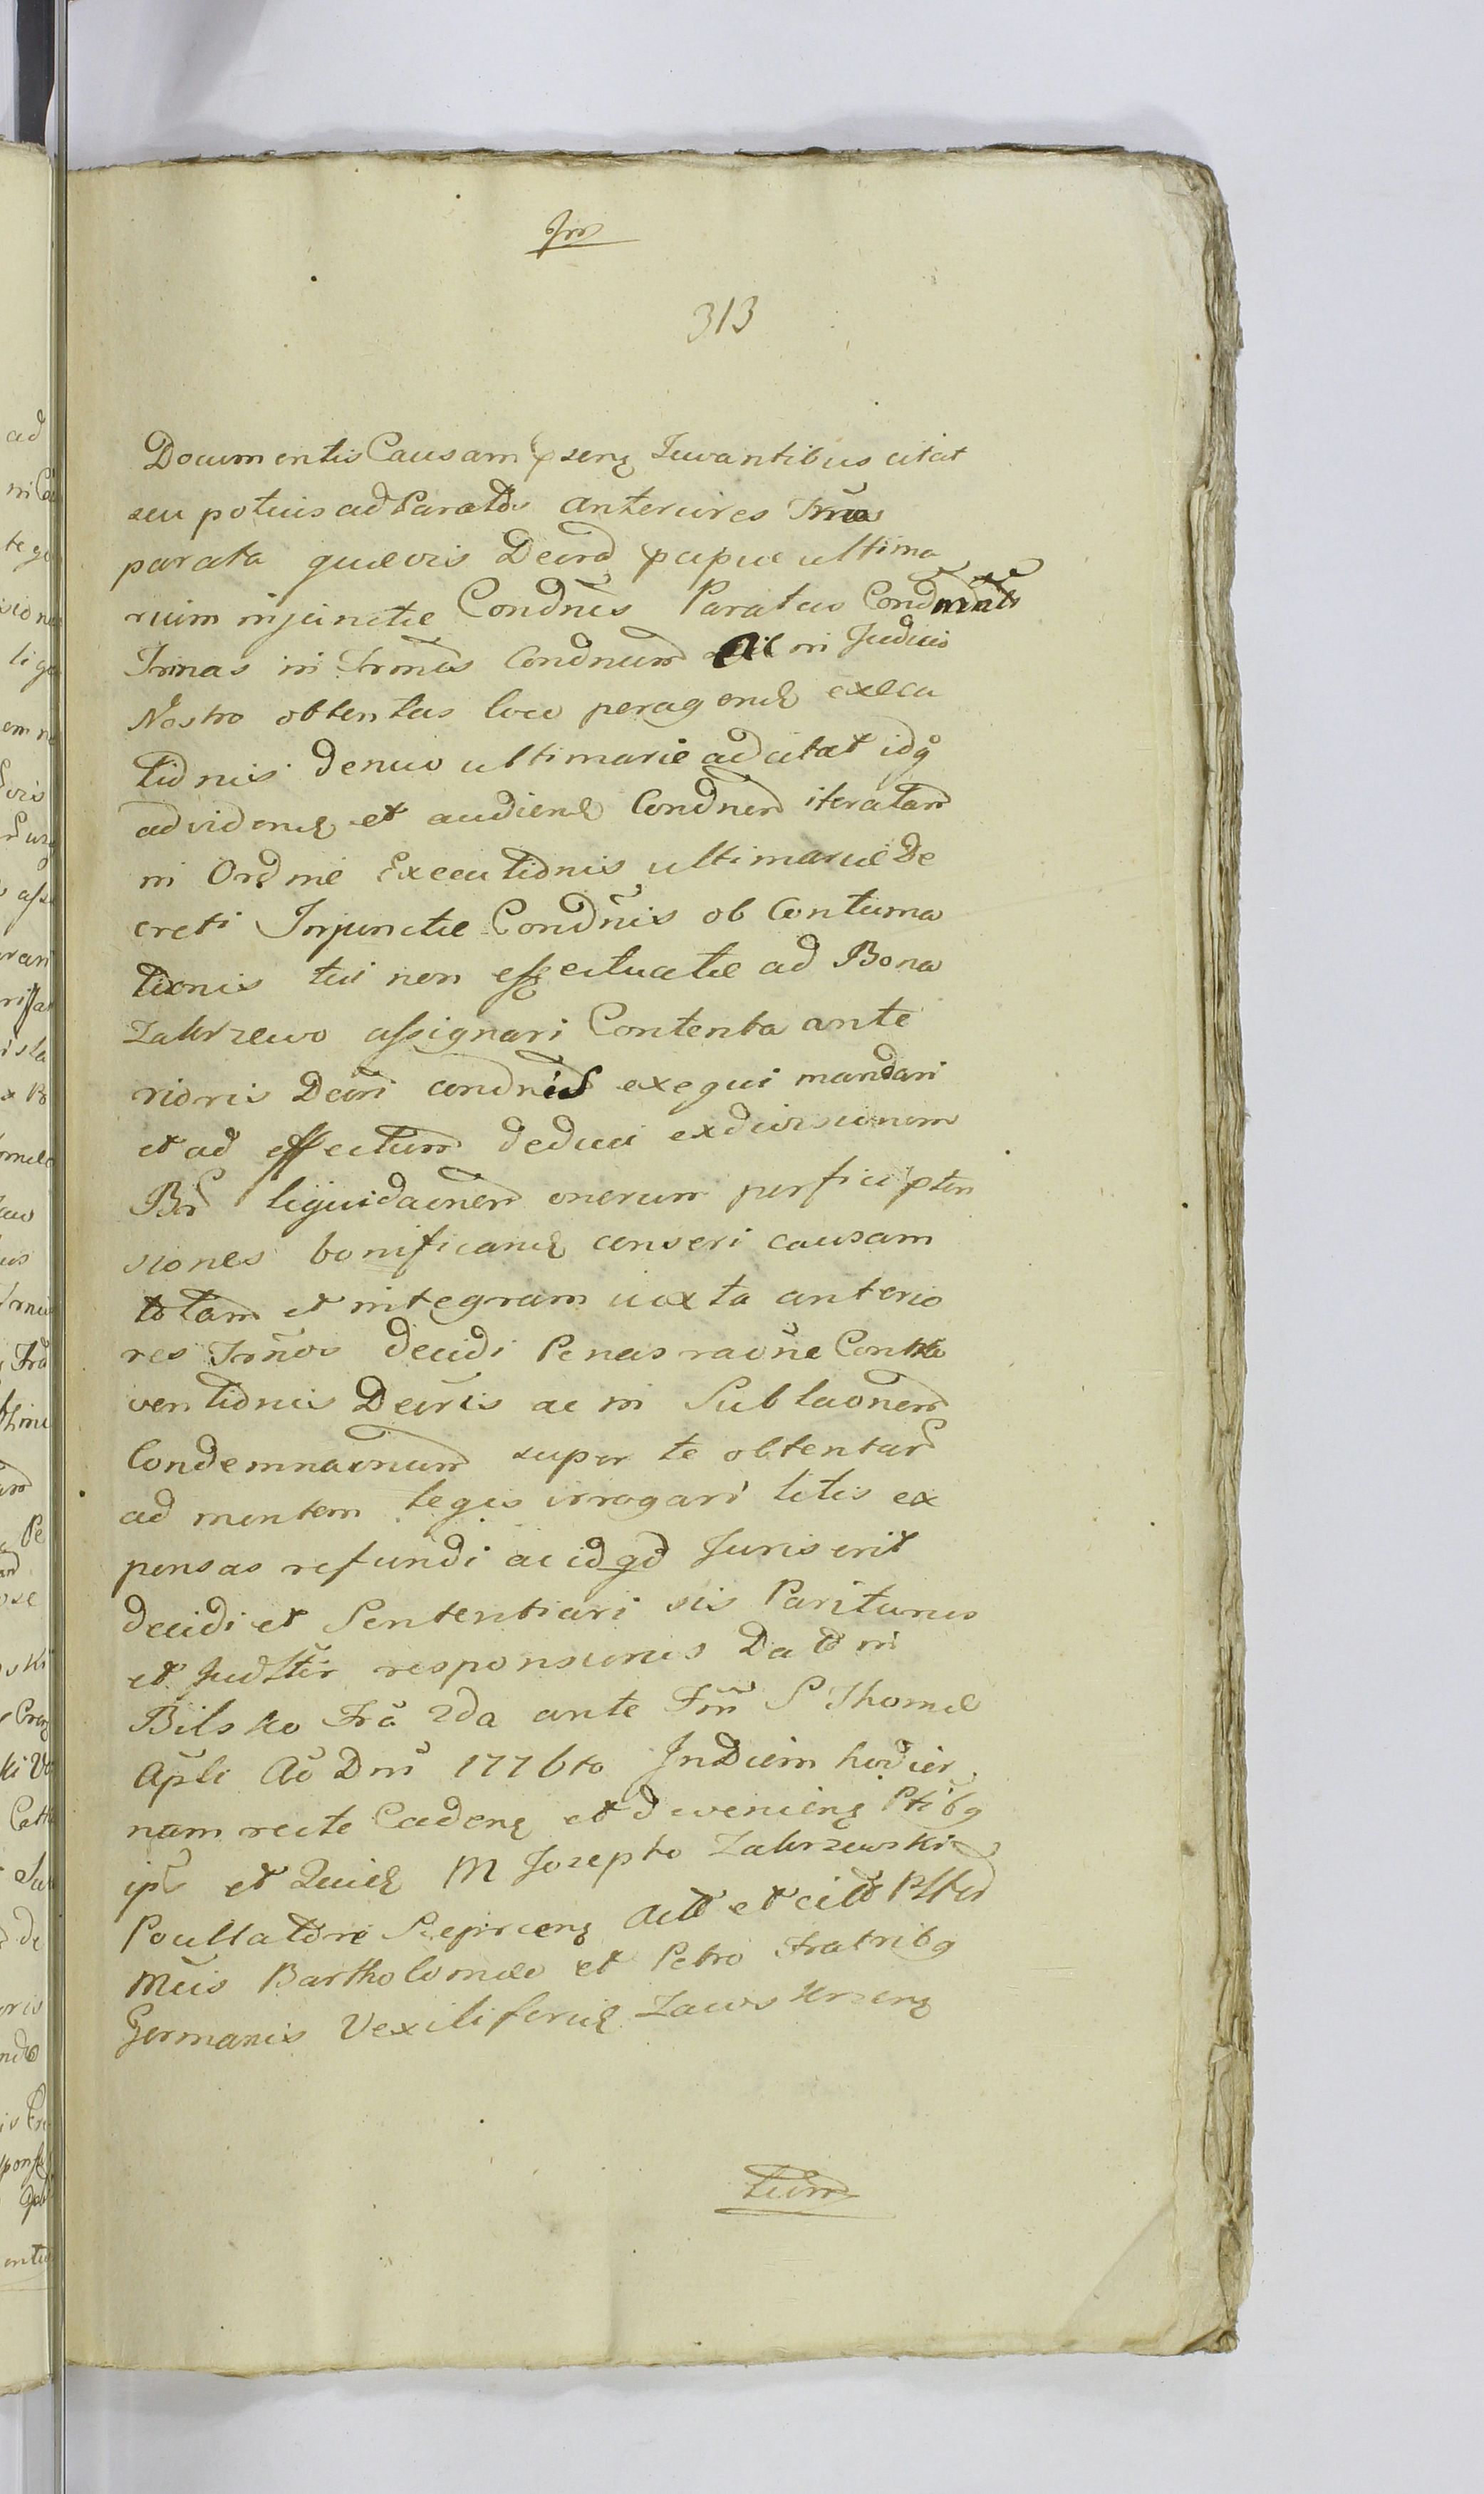 313
Documentis Causam Juvantibus citat
seu potius ad Paratos anteriores Trnos
parata quævis Decrd ultima
rium injunctæ Condnis Paratas
Trnas in Trnos Condnum ac in Judicio
Nostro obtentas loco peragend execu
tionis denuo ultimarie adcitat idq
ad vidend et audiend Condnem iteratam
in Ordine Executionis ultimariæ De
creti Injunctæ Condnis ob Contuma
tionis tui non effectuatæ ad Bona
Zakrzewo assignari Contenta ante
rioris Decri condnis exequi mandari
et ad effectum deduci exdivisionem
Bn liquidaonem onerum perfici pten
siones bonificand censeri causam
totam et integram iuxta anterio
res Trnos decidi Penas raone Contra
ventionis Decrtis ac in Sublaonem
Condemnaonum super te obtentar
ad mentem legis irrogari litis ex
pensas refundi ac id qd Juris erit
decidi et Sententiari sis Pariturus
et Judtir responsurus Dat in
Bilsko Fra 2da ante Fm S Thomæ
Apli Ao Dni 1776to In Diem hodier
nam recte Cadens et deveniens Ptibq
ips et Quid M Josepho Zakrzewski
Pocillatore act et citt
Mcis Bartholomæo et Petro Fratribq
Germanis Vexiliferid Zawskrzens
tum